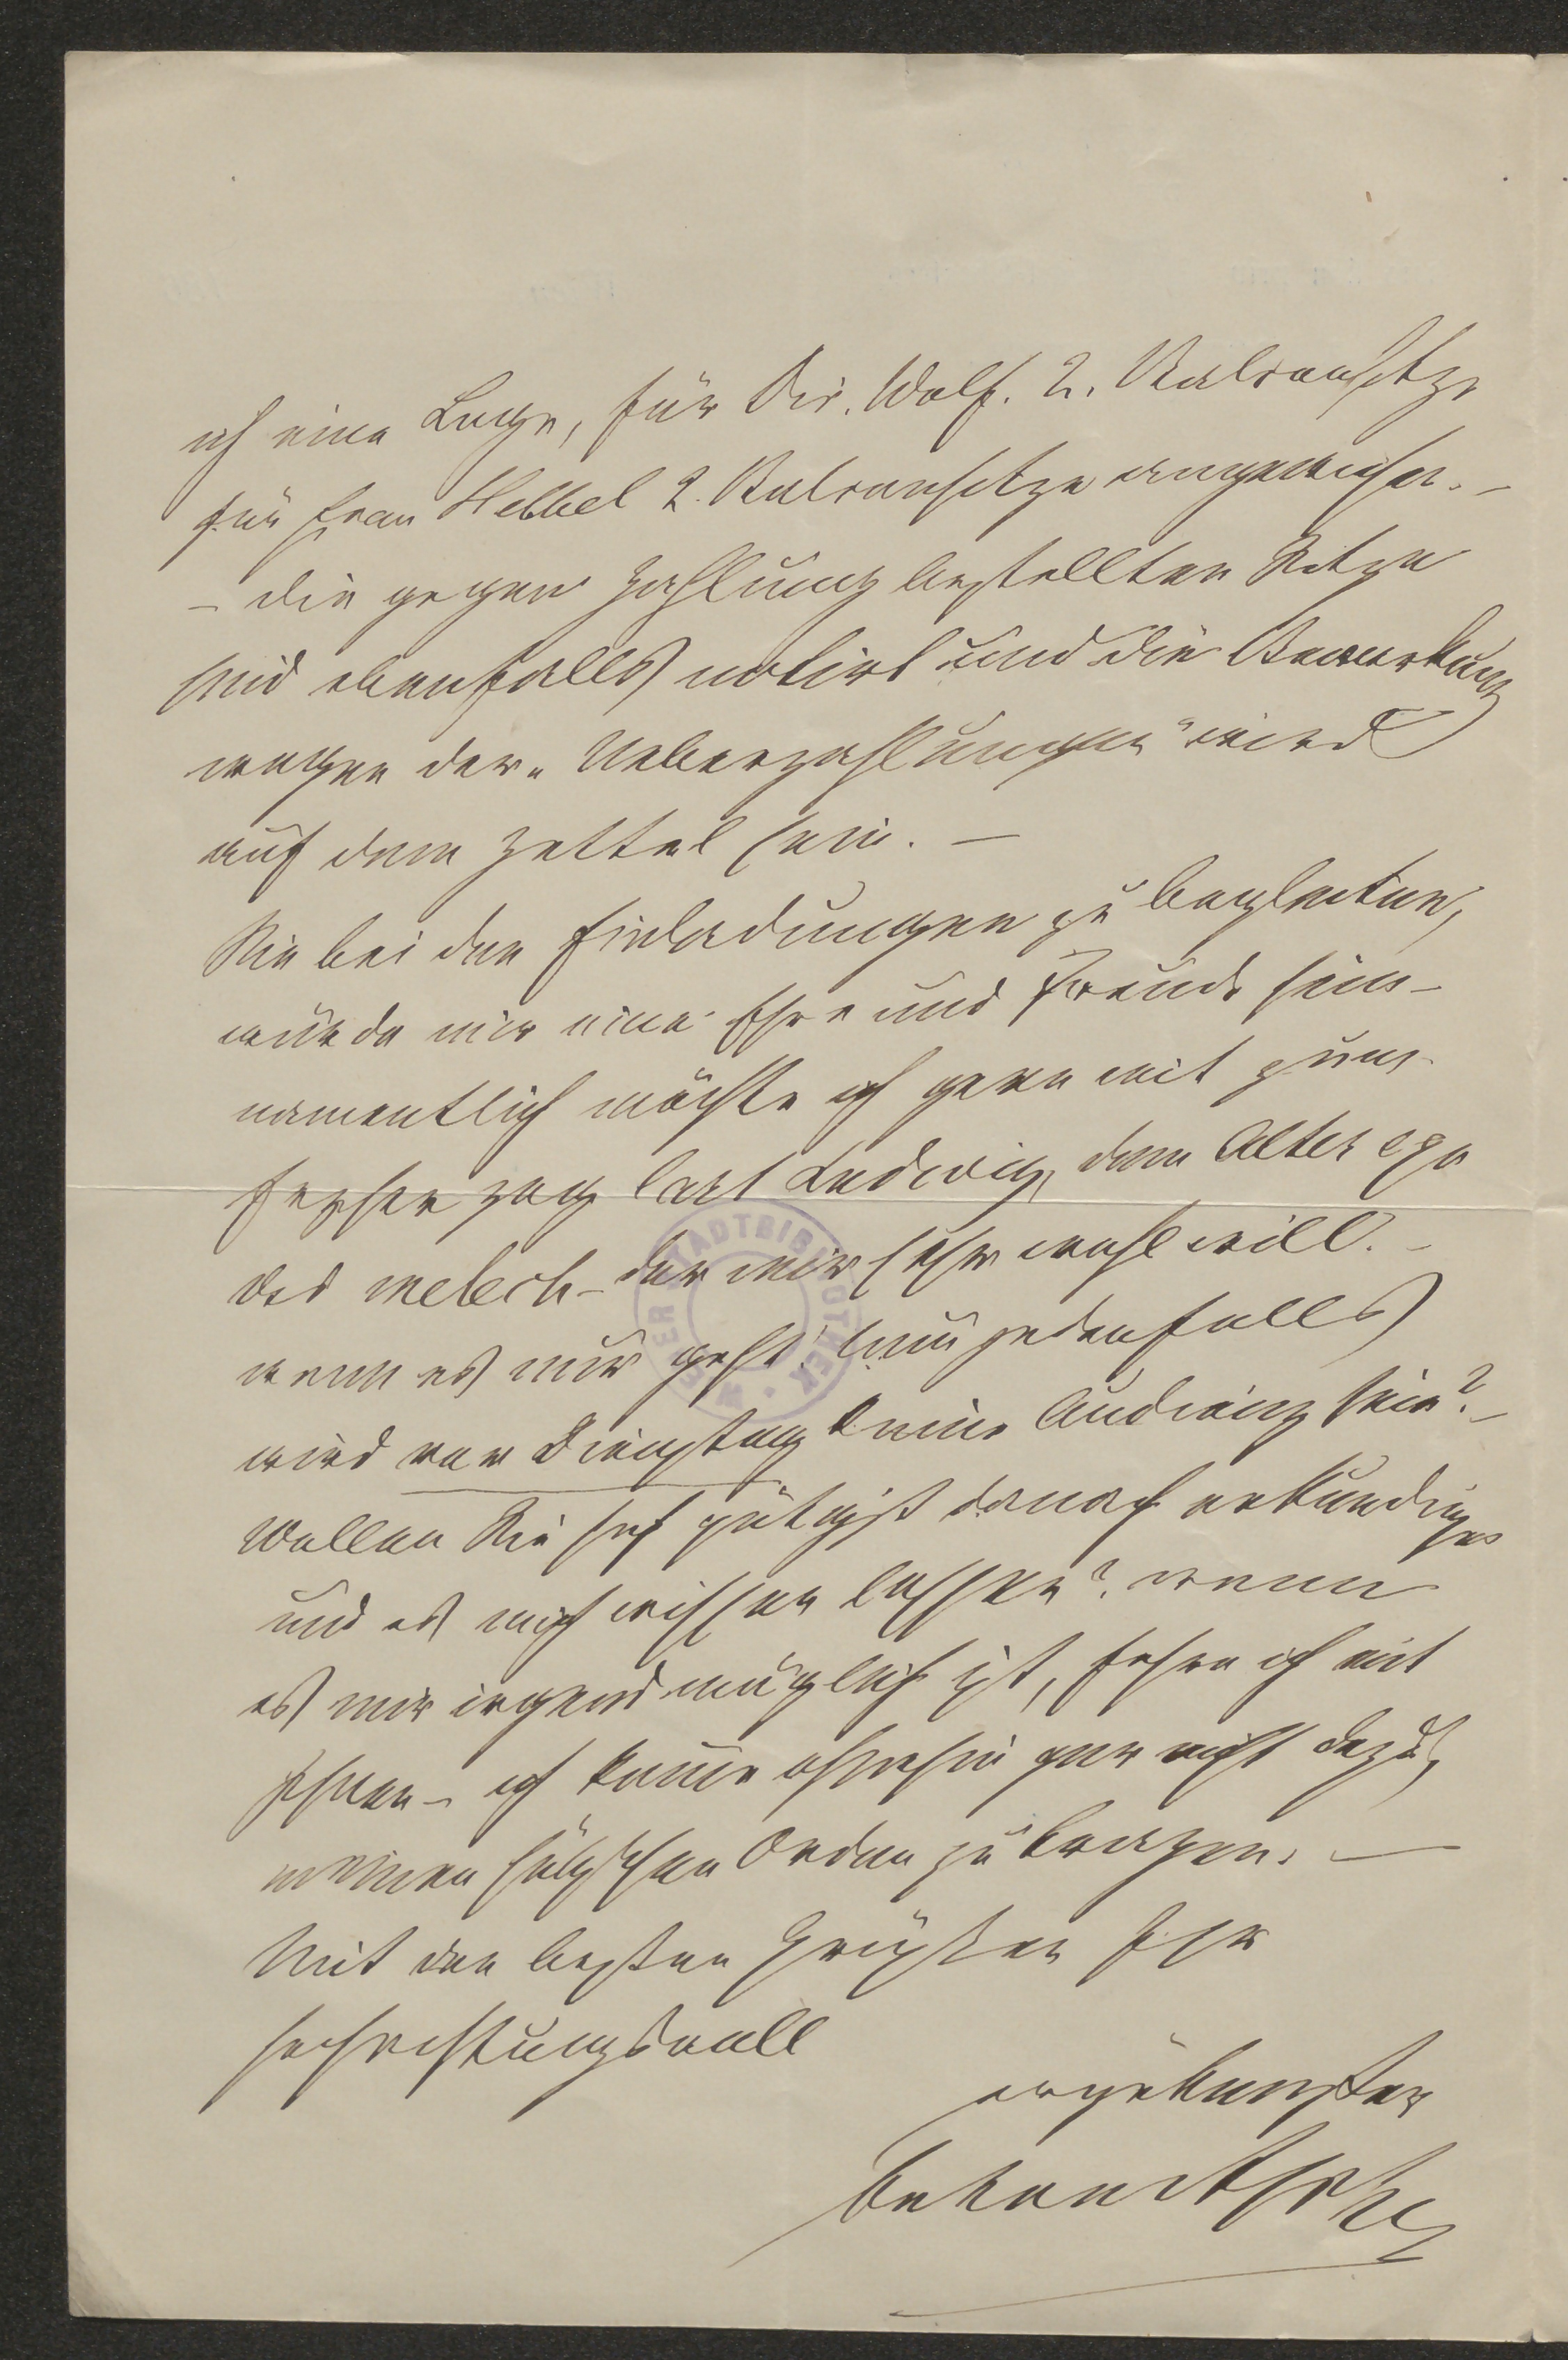 ich eine Loge, für Dir. Wolf. 2. Balconsitze
für Frau Hebbel 2. Balconsitze angewiesen. –
– die gegen Zahlung bestellten Sitze
sind ebenfalls notirt und die Bemerkung
wegen der „Ueberzahlungen“ wird
auf dem Zettel sein. –
Sie bei den Einladungen zu begleiten,
würde mir eine Ehre und Freude sein –
namentlich möchte ich gern mit zum
Erzherzog Carl Ludwig, dem Alter ego
des melech – der mir sehr wohl will. –
wenn es nur geht! nun jedenfalls
wird vor Dienstag keine Audienz sein? –
Wollen Sie sich gütigst danach erkundigen
und es mich wissen lassen? wenn
es mir irgend möglich ist, fahre ich mit
Ihnen – ich komme ohnehin gar nicht dazu,
meinen Orden zu tragen. –
Mit den besten Grüßen Ihr
hochachtungsvoll
ergebenster
WIENER STADTBIBLIOTHEK